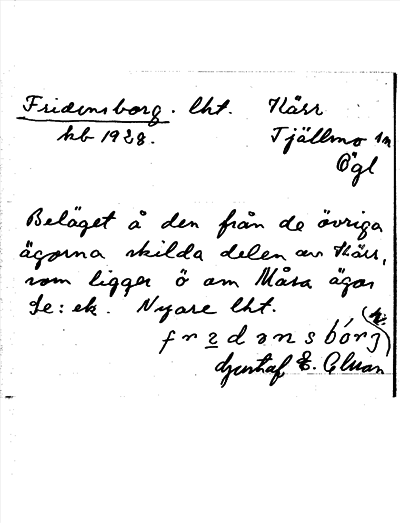 Fridensborg. lht. Kärr
kb 1928. Tjällmo sn
Ögl
Beläget å den från de övriga
ägorna skilda delen av Kärr,
som ligger ö om Måsa ägor
Se: ek. Nyare lht.
fredənsbórj
Gustaf E.